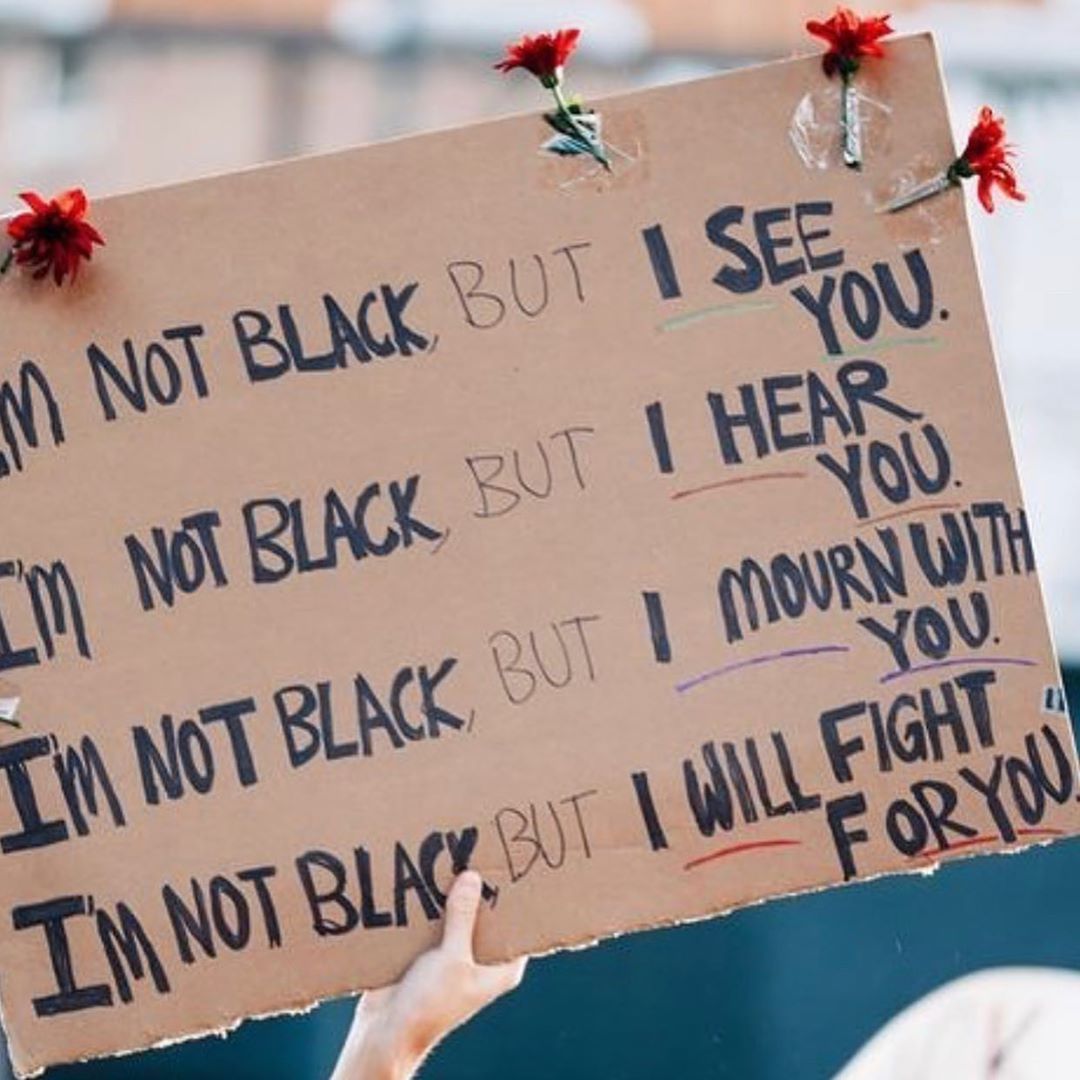 I'M NOT BLACK, BUT I SEE
YOU.
I'M NOT BLACK, BUT I HEAR
YOU.
I'M NOT BLACK, BUT I MOURN WITH
YOU.
I'M NOT BLACK, BUT I WILL FIGHT
FOR YOU.